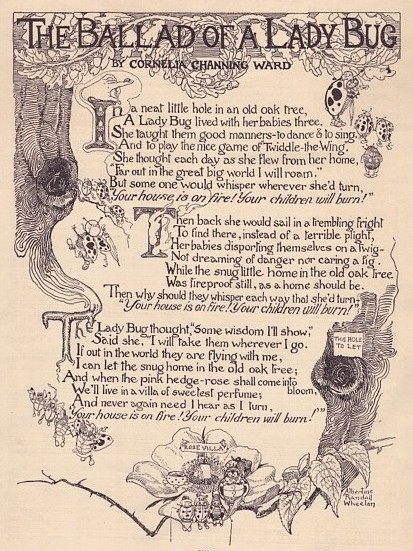 THE BALLAD OF A LADY BUG
BY CORNELIA CHANNING WARD
In a neat little hole in an old oak tree,
A Lady Bug lived with her babies three.
She taught them good manners-to dance & to sing,
And to play the nice game of Twiddle-the-Wing.
She thought each day as she flew from her home,
"Far out in the great big world I will roam."
But some one would whisper wherever she'd turn,
"Your house is on fire! Your children will burn!"
Then back she would sail in a trembling fright
To find there, instead of a terrible plight,
Her babies disporting themselves on a twig-
Not dreaming of danger nor caring a fig.
While the snug little home in the old oak tree
Was fireproof still, as a home should be.
Then why should they whisper each way that she'd turn,
"Your house is on fire! Your children will burn!"
The Lady Bug thought, "Some wisdom I'll show,"
Said she. "I will take them wherever I go.
If out in the world they are flying with me,
I can let the snug home in the old oak tree;
And when the pink hedge-rose shall come into bloom,
We'll live in a villa of sweetest perfume;
And never again need I hear as I turn,
'Your house is on fire! Your children will burn!'"
THIS HOLE
TO LET
ROSE VILLA
Albertine
Randall
Wheelan